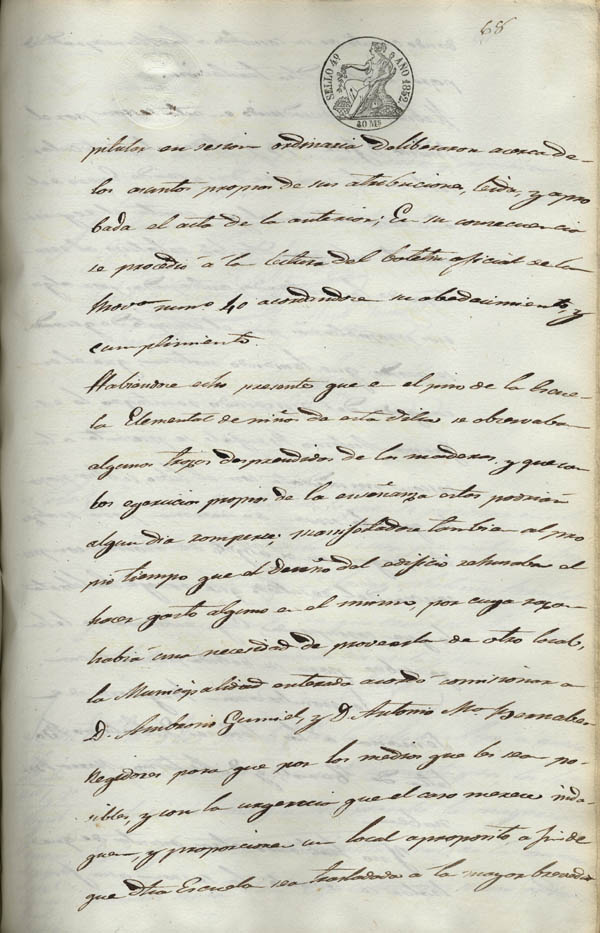 68
SELLO 4º AÑO 1852
40 Ms
pitular en sesion ordinaria deliberaron acerca de
los asuntos propios de sus atribuciones, leida, y apro
bada el acta de la anterior; En su consecuencia
se procedió á la lectura del boletin oficial de la
Provª num.º 40 acordandose su obedecimiento, y
cumplimiento.
Habiendose echo presente que en el piso de la Escue-
la Elemental de niños de esta Villa se observaban
algunos trozos desprendidos de los maderos, y que con
los egercicios propios de la enseñanza estos podrian
algun dia romperse; manifestadose tambien al pro
pio tiempo que el dueño del edificio rehusaba el
hacer gasto alguno en el mismo, por cuya razon
habia una necesidad de proveerla de otro local,
la Municipalidad enterada acordó comisionar a
D. Ambrosio Gumiel, y D. Antonio Mª Bernabeu
Regidores para que por los medios que les sea po-
sibles, y con la urgencia que el caso merece inda-
guen, y proporcionen un local aproposito, a fin de
que dha Escuela sea trasladada a la mayor brevedad